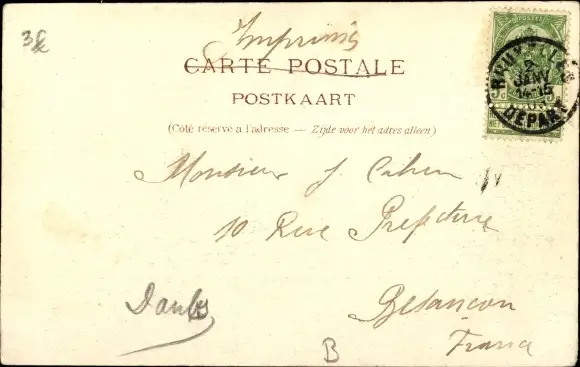 3€
Imprimés
CARTE POSTALE
POSTKAART
(Côté réservé à l'adresse — Zijde voor het adres alleen)
Monsieur J. Cahen
10 Rue Préfecture
Besançon
France
Doubs
B
POSTES
BRUXELLES
12
JANV
14-15
DEPART